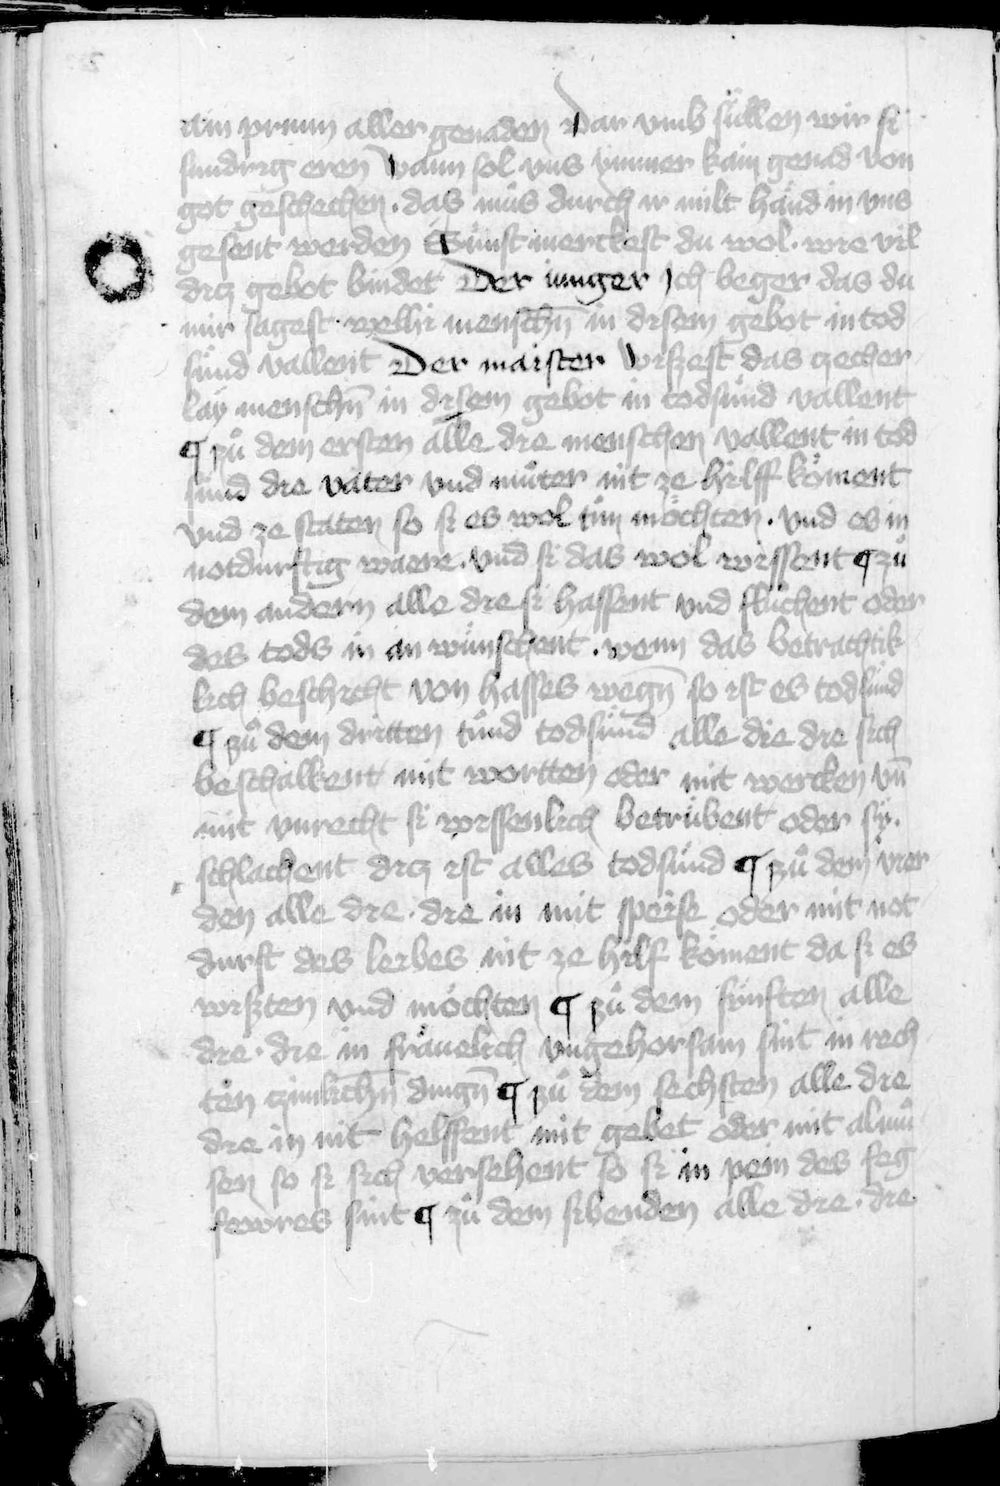 ain prunn aller genaden Dar vmb süllen wir si
sundrig eren Wann sol vns ymmer kain genad von
got geschechen · das můs durch ir milt händ in vns
gesent werden Sunst merckest du wol · wie vil
dicz gebot bindet Der iunger Jch beger das du
mir sagest · wellir menschn̄ in disem gebot in tod
sünd vallent Der maister Wiszest das zecher
lay menschn̄ in disem gebot in todsünd vallent
¶ zů dem ersten alle die menschen vallent in tod
sünd die vater vnd můter nit ze hilff köment
vnd ze staten so si es wol tůn möchten · vnd es in
notdurftig waere · vnd si das wol wissent ¶ zů
dem andern alle die si hassent vnd flůchent oder
des tods in an wünschent · wenn das betrachtik
lich beschicht von hasses wegn̄ so ist es todsünd
¶ zů dem dritten tůnd todsünd alle die die sich
beschalkent mit wortten oder mit wercken vn̄
mit vnrecht si wissenlich betrübent oder sy ·
schlachent dicz ist alles todsünd ¶ zů dem vier
den alle die · die in mit speise oder mit not
durft des leibes nit ze hilf köment da si es
wiszten vnd möchten ¶ zů dem fünften alle
die · die in fräuelich vngehorsam sint in rech
ten zimlichn̄ dingn̄ ¶ zů dem sechsten alle die
die in nit helffent mit gebet oder mit almů
sen so si sich versehent so si in pein des feg
fewres sint ¶ zů dem sibenden alle die · die